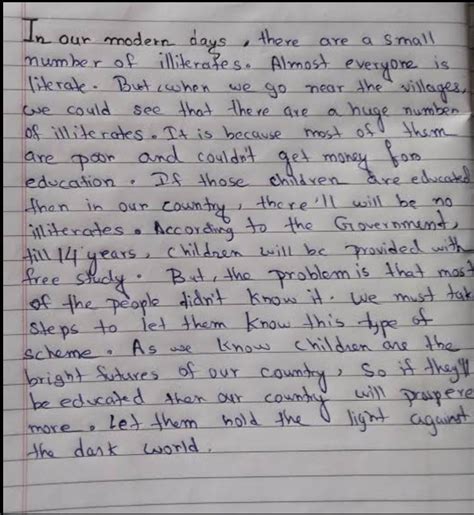 In our modern days, there are a small
number of illiterates. Almost everyone is
literate. But, when we go near the villages,
we could see that there are a huge number
of illiterates. It is because most of them
are poor and couldn't get money for
education. If those children are educated
then in our country, there'll will be no
illiterates. According to the Government,
till 14 years, children will be provided with
free study. But, the problem is that most
of the people didn't know it. We must tak
steps to let them know this type of
scheme. As we know children are the
bright futures of our country, so if they'll
be educated then our country will prospere
more. Let them hold the light against
the dark world.